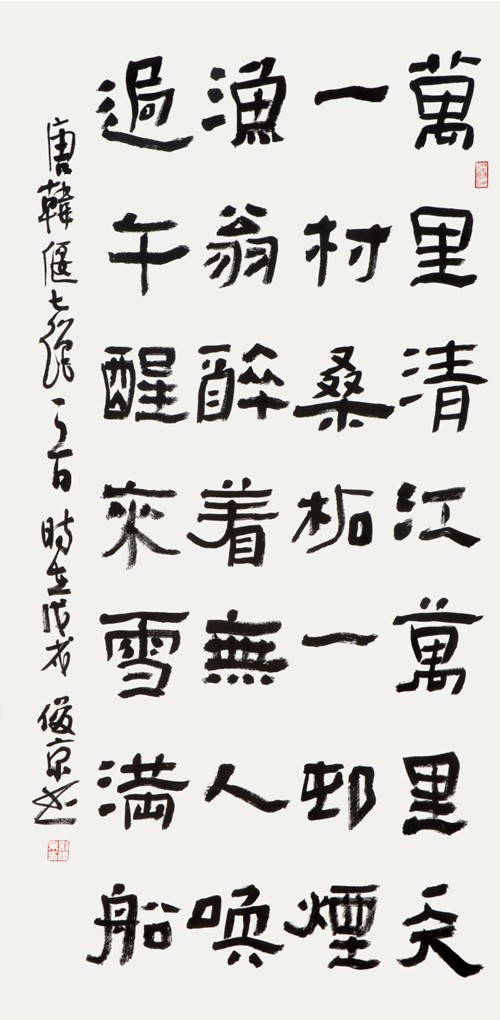 萬里清江萬里天
一村桑柘一邨煙
漁翁醉着無人喚
過午醒來雪滿船
唐韓偓七絕一首 時在戊戌 俊京书